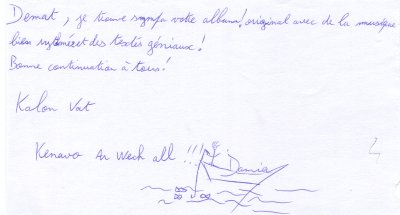 Demat, je trouve sympa votre album! original avec de la musique
bien rythmée et des textes géniaux!
Bonne continuation à tous!
Kalon Vat
Kenavo Ar Wech all !!!